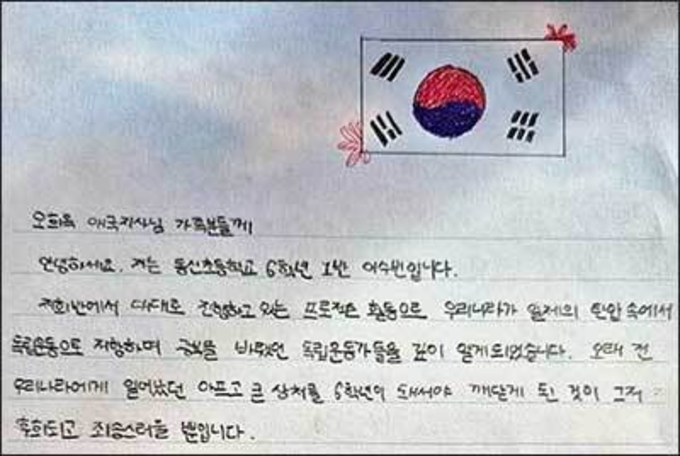 오희옥 애국지사님 가족분들께
안녕하세요. 저는 동신초등학교 6학년 1반 이수빈입니다.
저희반에서 대대로 진행하고 있는 프로젝트 활동으로 우리나라가 일제의 탄압 속에서
독립운동으로 저항하며 광복을 바랬던 독립운동가들을 깊이 알게되었습니다. 오래 전
우리나라에게 일어났던 아프고 큰 상처를 6학년이 돼서야 깨닫게 된 것이 그저
후회되고 죄송스러울 뿐입니다.